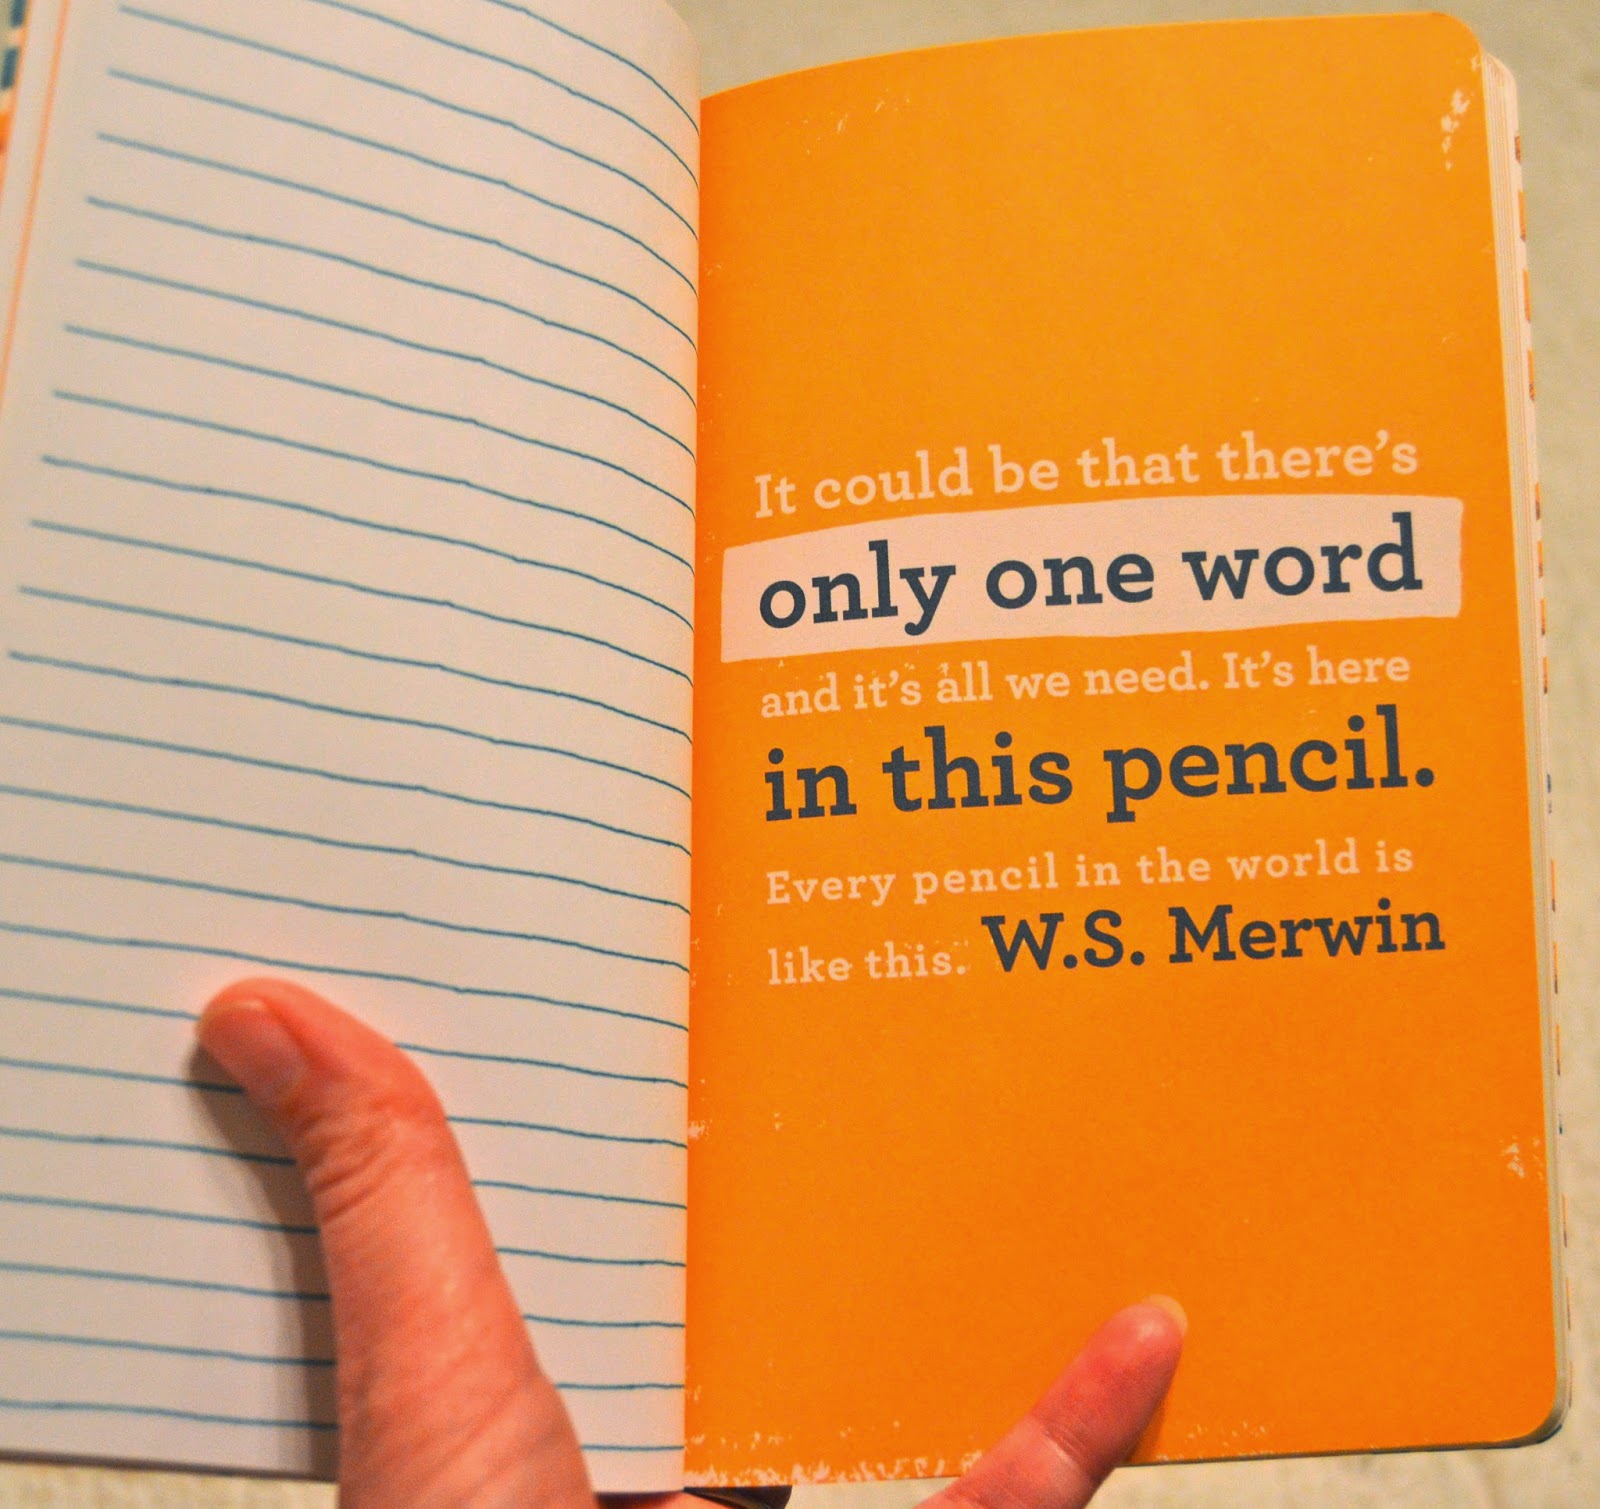 It could be that there's
only one word
and it's all we need. It's here
in this pencil.
Every pencil in the world is
like this. W.S. Merwin